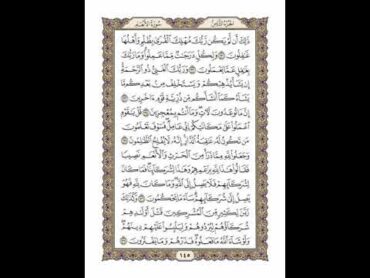 الجزء الثامن سورة الأنعام
ذَٰلِكَ أَن لَّمْ يَكُن رَّبُّكَ مُهْلِكَ الْقُرَىٰ بِظُلْمٍ وَأَهْلُهَا
غَافِلُونَ ١٣١ وَلِكُلٍّ دَرَجَاتٌ مِّمَّا عَمِلُوا وَمَا رَبُّكَ
بِغَافِلٍ عَمَّا يَعْمَلُونَ ١٣٢ وَرَبُّكَ الْغَنِيُّ ذُو الرَّحْمَةِ
إِن يَشَأْ يُذْهِبْكُمْ وَيَسْتَخْلِفْ مِن بَعْدِكُم مَّا
يَشَاءُ كَمَا أَنشَأَكُم مِّن ذُرِّيَّةِ قَوْمٍ آخَرِينَ ١٣٣
إِنَّ مَا تُوعَدُونَ لَآتٍ وَمَا أَنتُم بِمُعْجِزِينَ ١٣٤ قُلْ يَا قَوْمِ
اعْمَلُوا عَلَىٰ مَكَانَتِكُمْ إِنِّي عَامِلٌ فَسَوْفَ تَعْلَمُونَ
مَن تَكُونُ لَهُ عَاقِبَةُ الدَّارِ إِنَّهُ لَا يُفْلِحُ الظَّالِمُونَ ١٣٥
وَجَعَلُوا لِلَّهِ مِمَّا ذَرَأَ مِنَ الْحَرْثِ وَالْأَنْعَامِ نَصِيبًا
فَقَالُوا هَٰذَا لِلَّهِ بِزَعْمِهِمْ وَهَٰذَا لِشُرَكَائِنَا فَمَا كَانَ
لِشُرَكَائِهِمْ فَلَا يَصِلُ إِلَى اللَّهِ وَمَا كَانَ لِلَّهِ فَهُوَ
يَصِلُ إِلَىٰ شُرَكَائِهِمْ سَاءَ مَا يَحْكُمُونَ ١٣٦ وَكَذَٰلِكَ
زَيَّنَ لِكَثِيرٍ مِّنَ الْمُشْرِكِينَ قَتْلَ أَوْلَادِهِمْ
شُرَكَاؤُهُمْ لِيُرْدُوهُمْ وَلِيَلْبِسُوا عَلَيْهِمْ دِينَهُمْ
وَلَوْ شَاءَ اللَّهُ مَا فَعَلُوهُ فَذَرْهُمْ وَمَا يَفْتَرُونَ ١٣٧
١٤٥